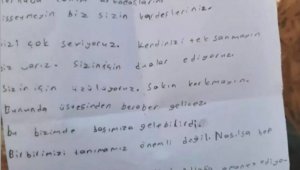 arkadaşlar
hissetmeyin biz sizin kardeşleriniz.
çok seviyoruz. Kendinizi tek sanmayın
biz varız. Sizin için dualar ediyoruz.
Sizin için üzülüyoruz. Sakın korkmayın.
Bununda üstesinden beraber gelicez.
bu bizimde başımıza gelebilirdi.
Birbirimizi tanımamız önemli değil. Nasılsa hep